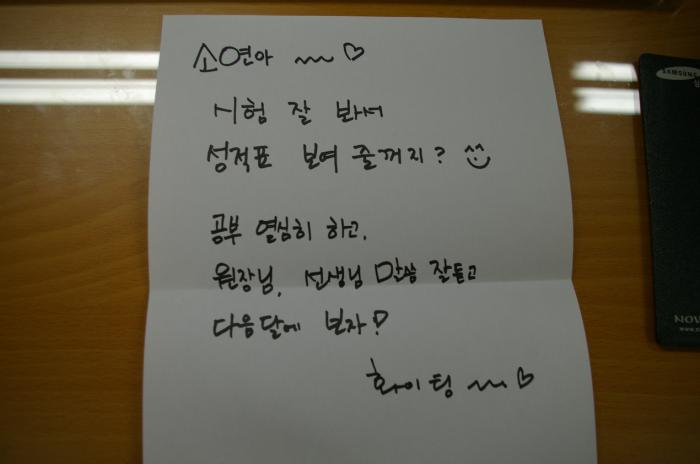 소연아 ~ ♡
시험 잘 봐서
성적표 보여 줄꺼지? ^^
공부 열심히 하고,
원장님, 선생님 말씀 잘듣고
다음달에 보자!
화이팅 ~ ♡
SAMSUNG